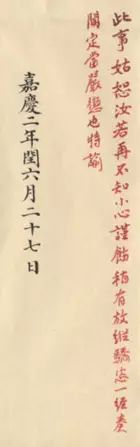 此事姑恕汝若再不知小心謹飭稍有放縱驕恣一經奏
聞定當嚴懲也特諭
嘉慶二年閏六月二十七日